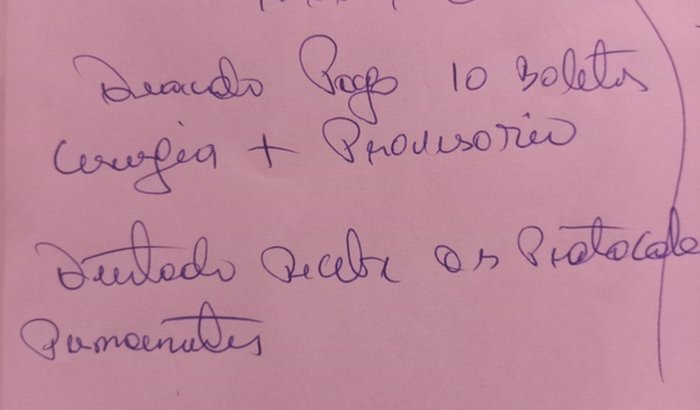 Pago 10 Boletos
Cirurgia + Provisorio
recebe os Protocolo
Permanentes